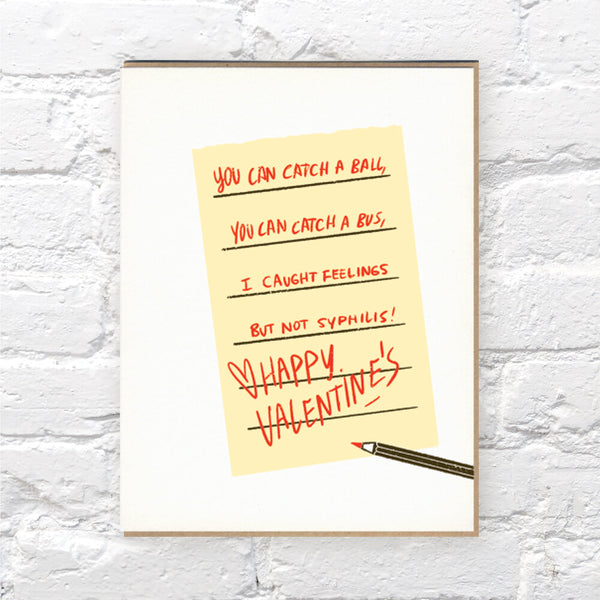 YOU CAN CATCH A BALL,
YOU CAN CATCH A BUS,
I CAUGHT FEELINGS
BUT NOT SYPHILIS!
HAPPY
VALENTINE'S